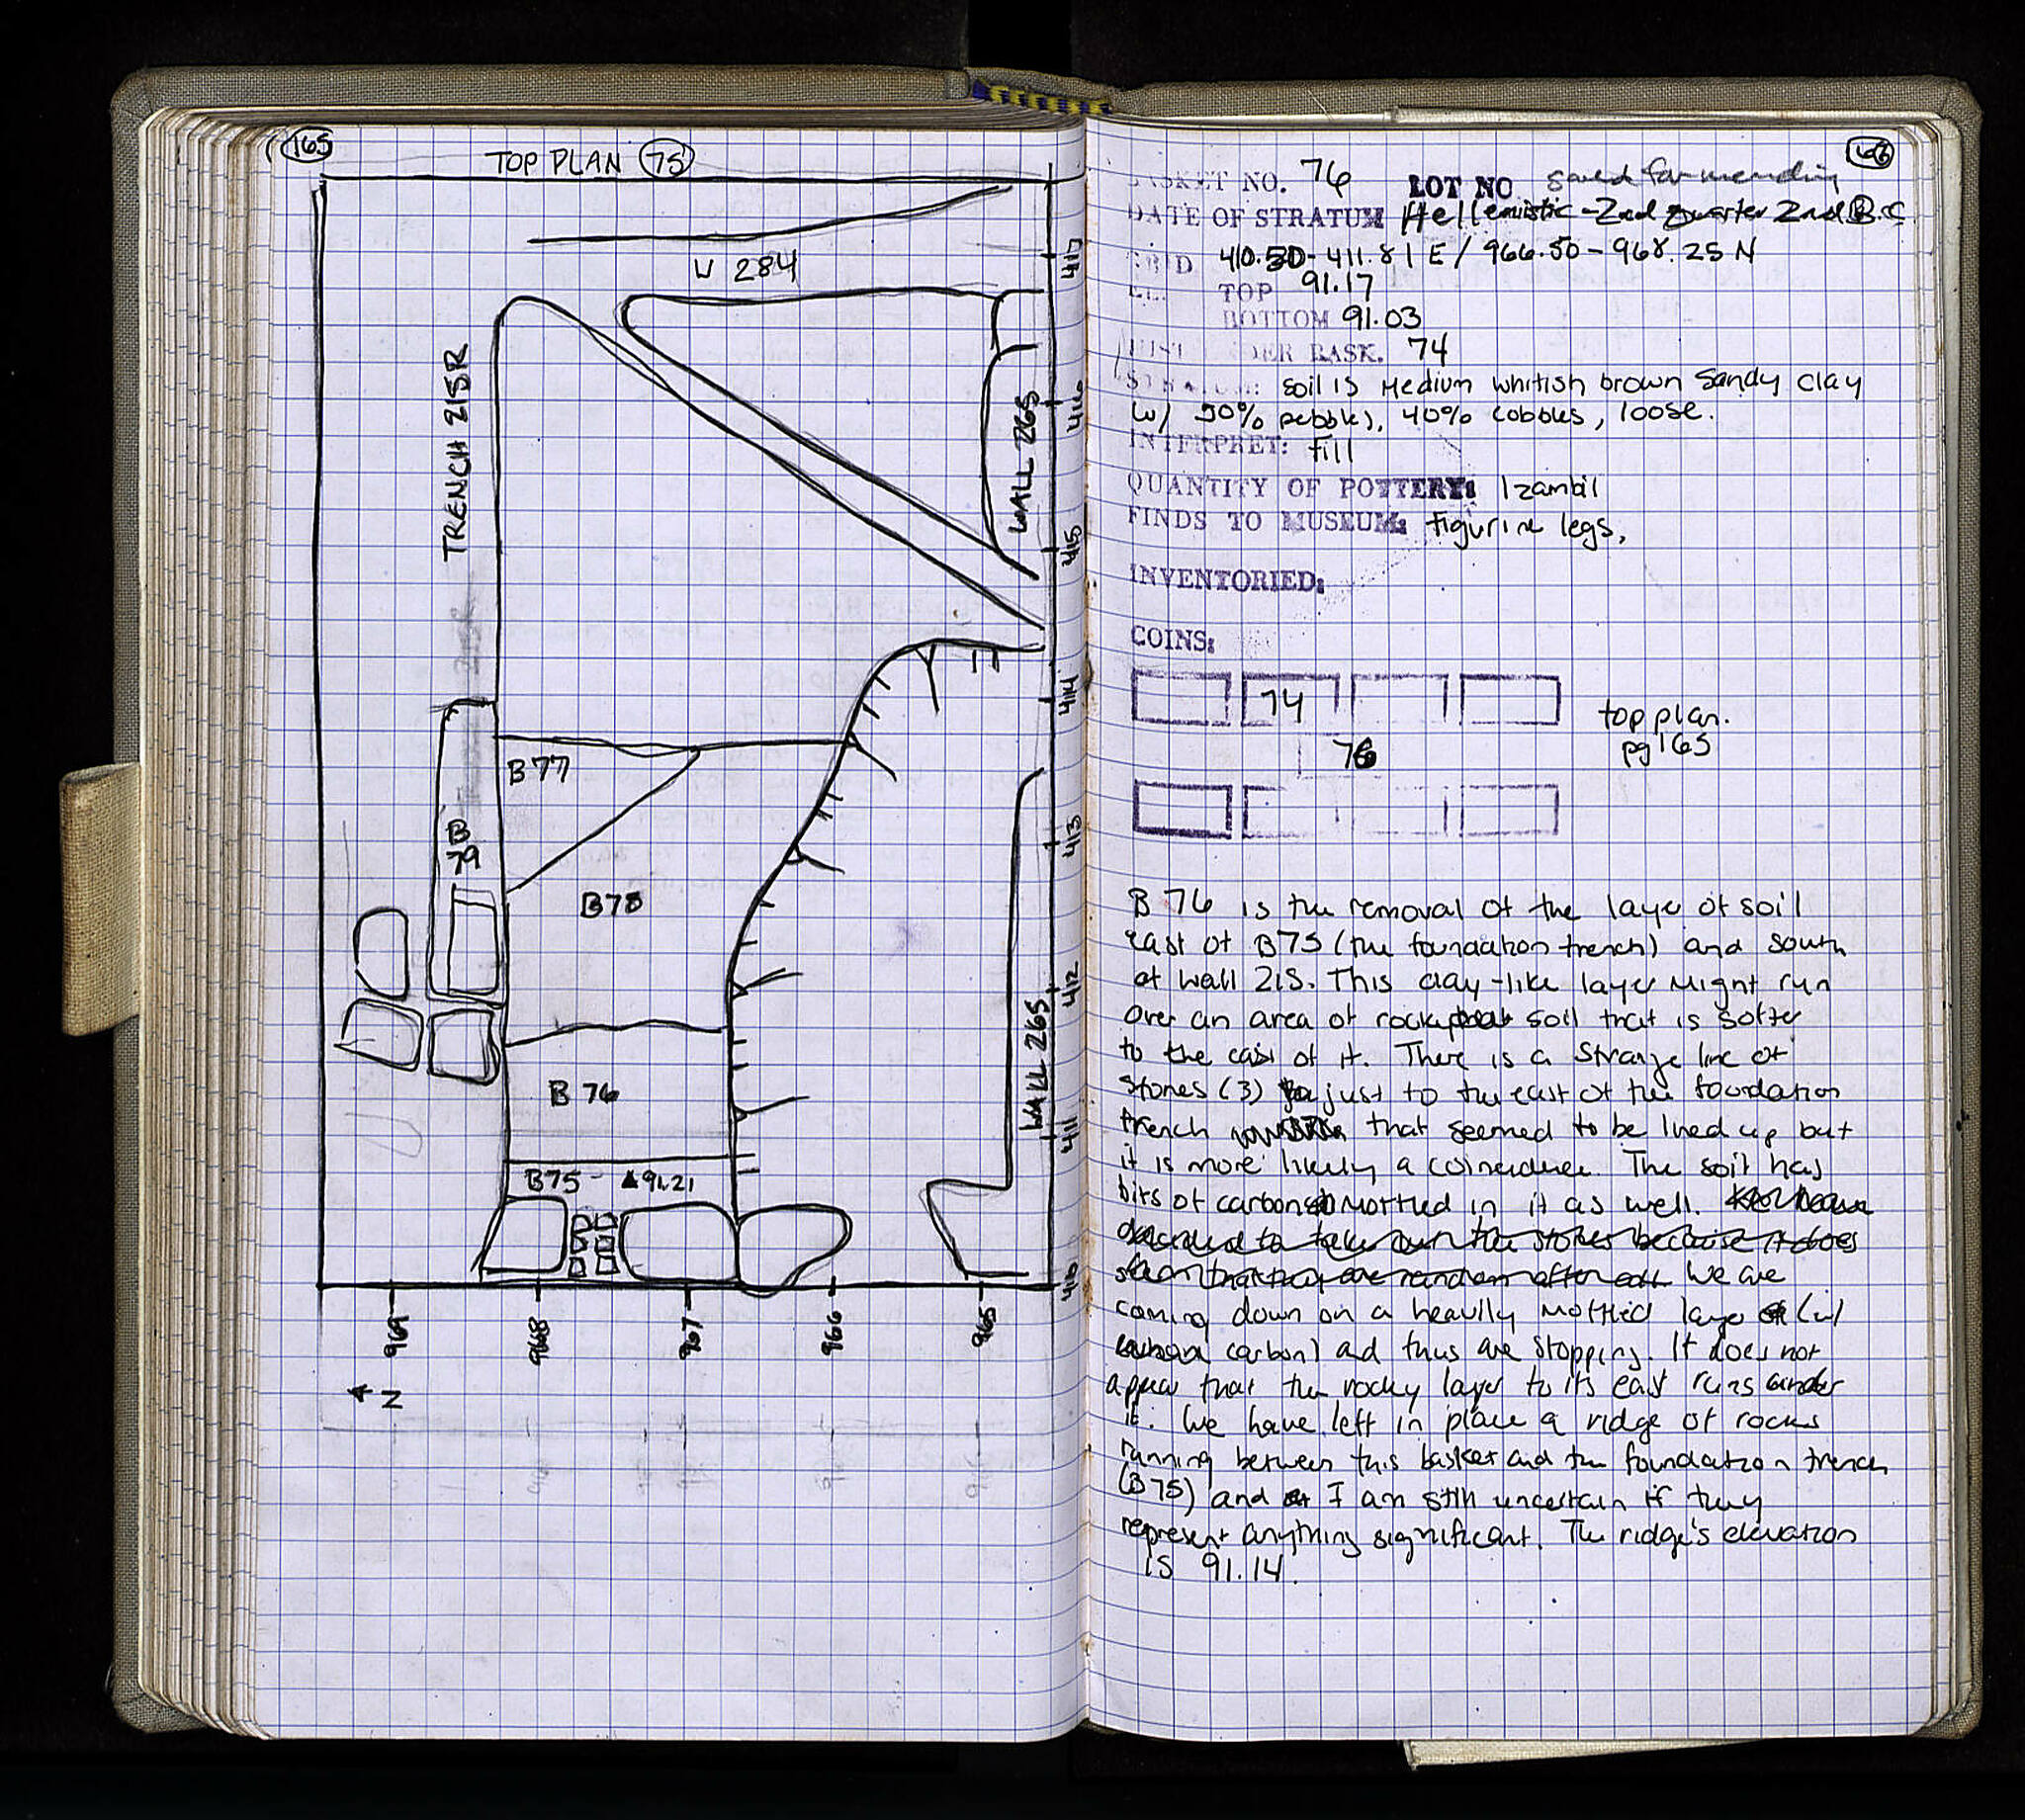 165
TOP PLAN 75
W 284
417
TRENCH 215R
WALL 265
416
415
414
B 77
B
79
413
B78
412
WALL 265
B 76
411
B75 - ▲ 91.21
410
969
968
967
966
965
N
166
BASKET NO. 76 LOT NO saved for mending
DATE OF STRATUM Hellenistic - 2nd quarter 2nd B.C.
GRID 410.50 - 411.81 E / 966.50 - 968.25 N
EL. TOP 91.17
BOTTOM 91.03
JUST UNDER BASK. 74
STRATUM: soil is medium whitish brown sandy clay
w/ 50% pebbles, 40% cobbles, loose.
INTERPRET: fill
QUANTITY OF POTTERY: 1 zambil
FINDS TO MUSEUM: figurine legs,
INVENTORIED:
COINS:
74
top plan.
76
pg 165
B 76 is the removal of the layer of soil
east of B75 (the foundation trench) and south
of wall 215. This clay-like layer might run
over an area of rocky soil that is softer
to the east of it. There is a strange line of
stones (3) just to the east of the foundation
trench that seemed to be lined up but
it is more likely a coincidence. The soil has
bits of carbon mottled in it as well.
decided to take down the stones because it does
seem that they are random after all. We are
coming down on a heavily mottled layer (w/
carbon) and thus are stopping. It does not
appear that the rocky layer to its east runs under
it. We have left in place a ridge of rocks
running between this basket and the foundation trench
(B75) and I am still uncertain if they
represent anything significant. The ridge's elevation
is 91.14.